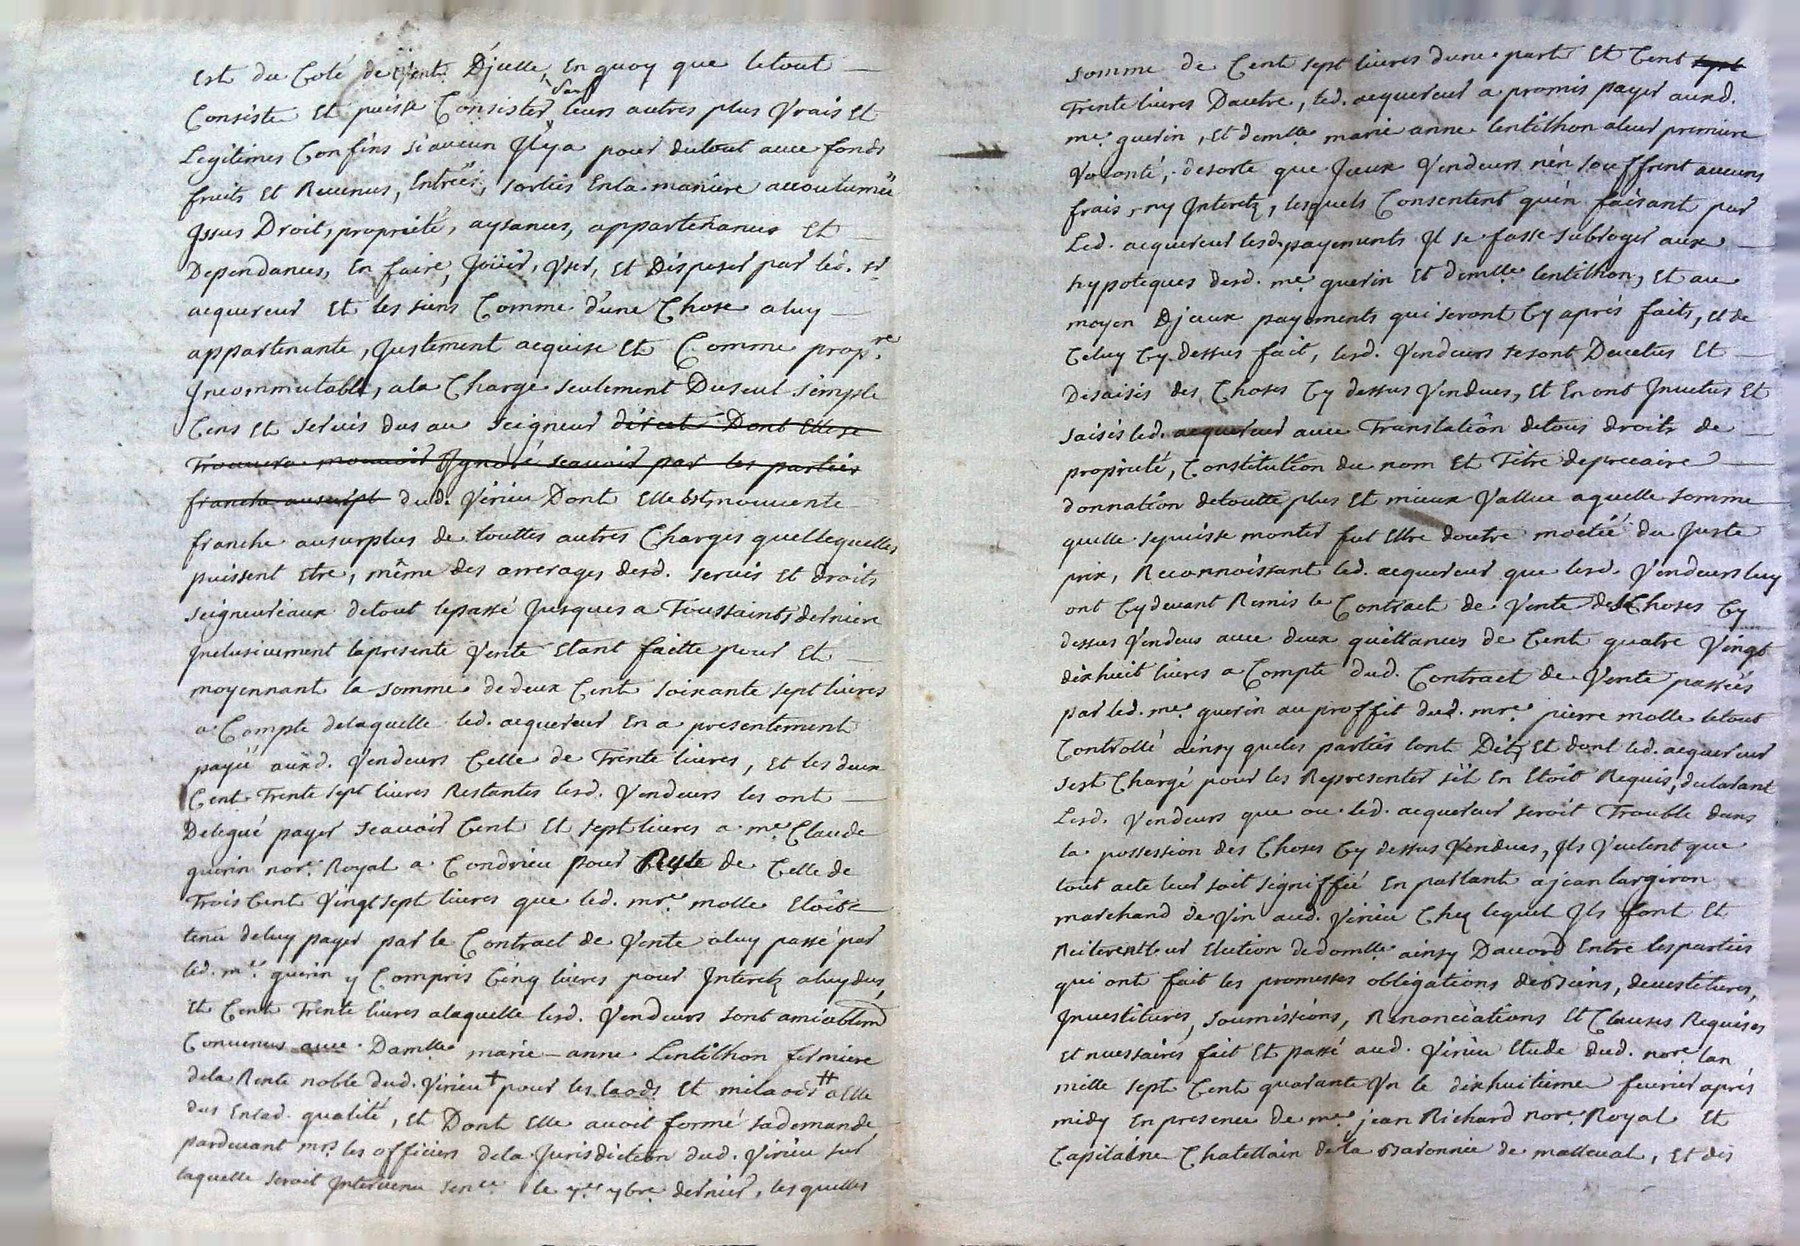 Est du Coté de Vent D'jcelle, En quoy que letout
Consiste Et puisse Consister sauf leurs autres plus Vrais Et
Legitimes Confins siaucun Jlya pour dutout avec fonds
fruits Et Revenus, Entrées, sorties Enla maniere accoutumée
Jssus Droits, proprieté, aysances, appartenances Et
Dependances, En faire, Joüir, Vser, Et Disposer par led. sr
acquereur Et les siens Comme d'une Chose aluy
appartenante, Justement acquise Et Comme propre
Jncommutable, ala Charge seulement Duseul simple
Cens Et servis dus au seigneur direct Dont Elle se
Trouvera mouvoir Jgnoré scavoir par les parties
franche ausurpl dud. Virieu Dont Elle Est, mouvente
franche ausurplus de touttes autres Charges quellesquelles
puissent Etre, même des arrerages desd. servis Et droits
seigneuriaux detout lepassé Jusques a Toussaints derniere
Jnclusivement lapresente Vente Etant faitte pour Et
moyennant la somme de deux Cent soixante sept livres
a Compte delaquelle led. acquereur En a presentement
payé auxd. Vendeurs Celle de Trente livres, Et les deux
Cent Trente sept livres Restantes lesd. Vendeurs les ont
Delegué payer scavoir Cent Et sept livres a me. Claude
guerin nore. Royal a Condrieu pour Reste de Celle de
Trois Cent Vingt sept livres que led. mre. molle Etoit
tenu deluy payer par le Contract de Vente aluy passé par
led. me. guerin y Compris Cinq livres pour Interetz aluy dus,
Et Cent Trente livres alaquelle lesd. Vendeurs sont amiablemt
Convenus avec Damlle. marie-anne Lentilhon fermiere
dela Rente noble dud. Virieu + pour les laods Et milaods # aElle
dus Enlad. qualité, Et Dont Elle avoit formé sademande
pardevant mrs. les officiers dela Jurisdiction dud. Virieu sur
laquelle seroit Jntervenu sence. le ybre. dernier, lesquelles
somme de Cent sept livres dune part Et Cent sept
Trente livres Dautre, led. acquereur a promis payer auxd.
me. guerin, Et demlle. marie anne lentilhon aleur premiere
Volonté, desorte que Jceux Vendeurs n'en souffrent aucuns
frais, ny Jnteretz, lesquels Consentent qu'en faisant par
Led. acquereur lesd. payements Jl se fasse subroger aux
hypoteques desd. me. guerin Et demlle. lentilhon, Et au
moyen Djceux payements qui seront Cy aprés faits, Et de
Celuy Cy dessus fait, lesd. Vendeurs sesont Devetus Et
Desaisis des Choses Cy dessus Vendues, Et En ont Jnvetus Et
saisis led. acquereur avec Translation detous droits de
proprieté, Constitution du nom Et Titre deprecaire
donnation detoutte plus Et mieux Vallue aquelle somme
quelle sepuisse monter fut Elle doutre moitié du Juste
prix, Reconnoissant led. acquereur que lesd. Vendeurs luy
ont Cy devant Remis le Contract de Vente des Choses Cy
dessus Vendues avec deux quittances de Cent quatre Vingt
dixhuit livres a Compte dud. Contract de Vente passées
par led. me. guerin au proffit dud. mre. pierre molle letout
Controllé ainsy queles parties lont Dit, Et dont led. acquereur
sest Chargé pour les Representer s'il En Etoit Requis, declarant
Lesd. Vendeurs que ou led. acquereur seroit Troublé dans
la possession des Choses Cy dessus Vendues, Jls Veulent que
tout acte leur soit signiffié En parlant a jean largiron
marchand de Vin aud. Virieu Chez lequel Jls font Et
Reiterent leur Election dedomlle. ainsy Daccord Entre lesparties
qui ont fait les promesses obligations de Biens, devestitures,
Jnvestitures, soumissions, Renonciations Et Clauses Requises
Et necessaires fait Et passé aud. Virieu Etude dud. nore. lan
mille sept Cent quarante Vn le dixhuitieme fevrier aprés
midy En presence de me. jean Richard nore. Royal Et
Capitaine Chatellain de la Baronnie de malleval, Et des